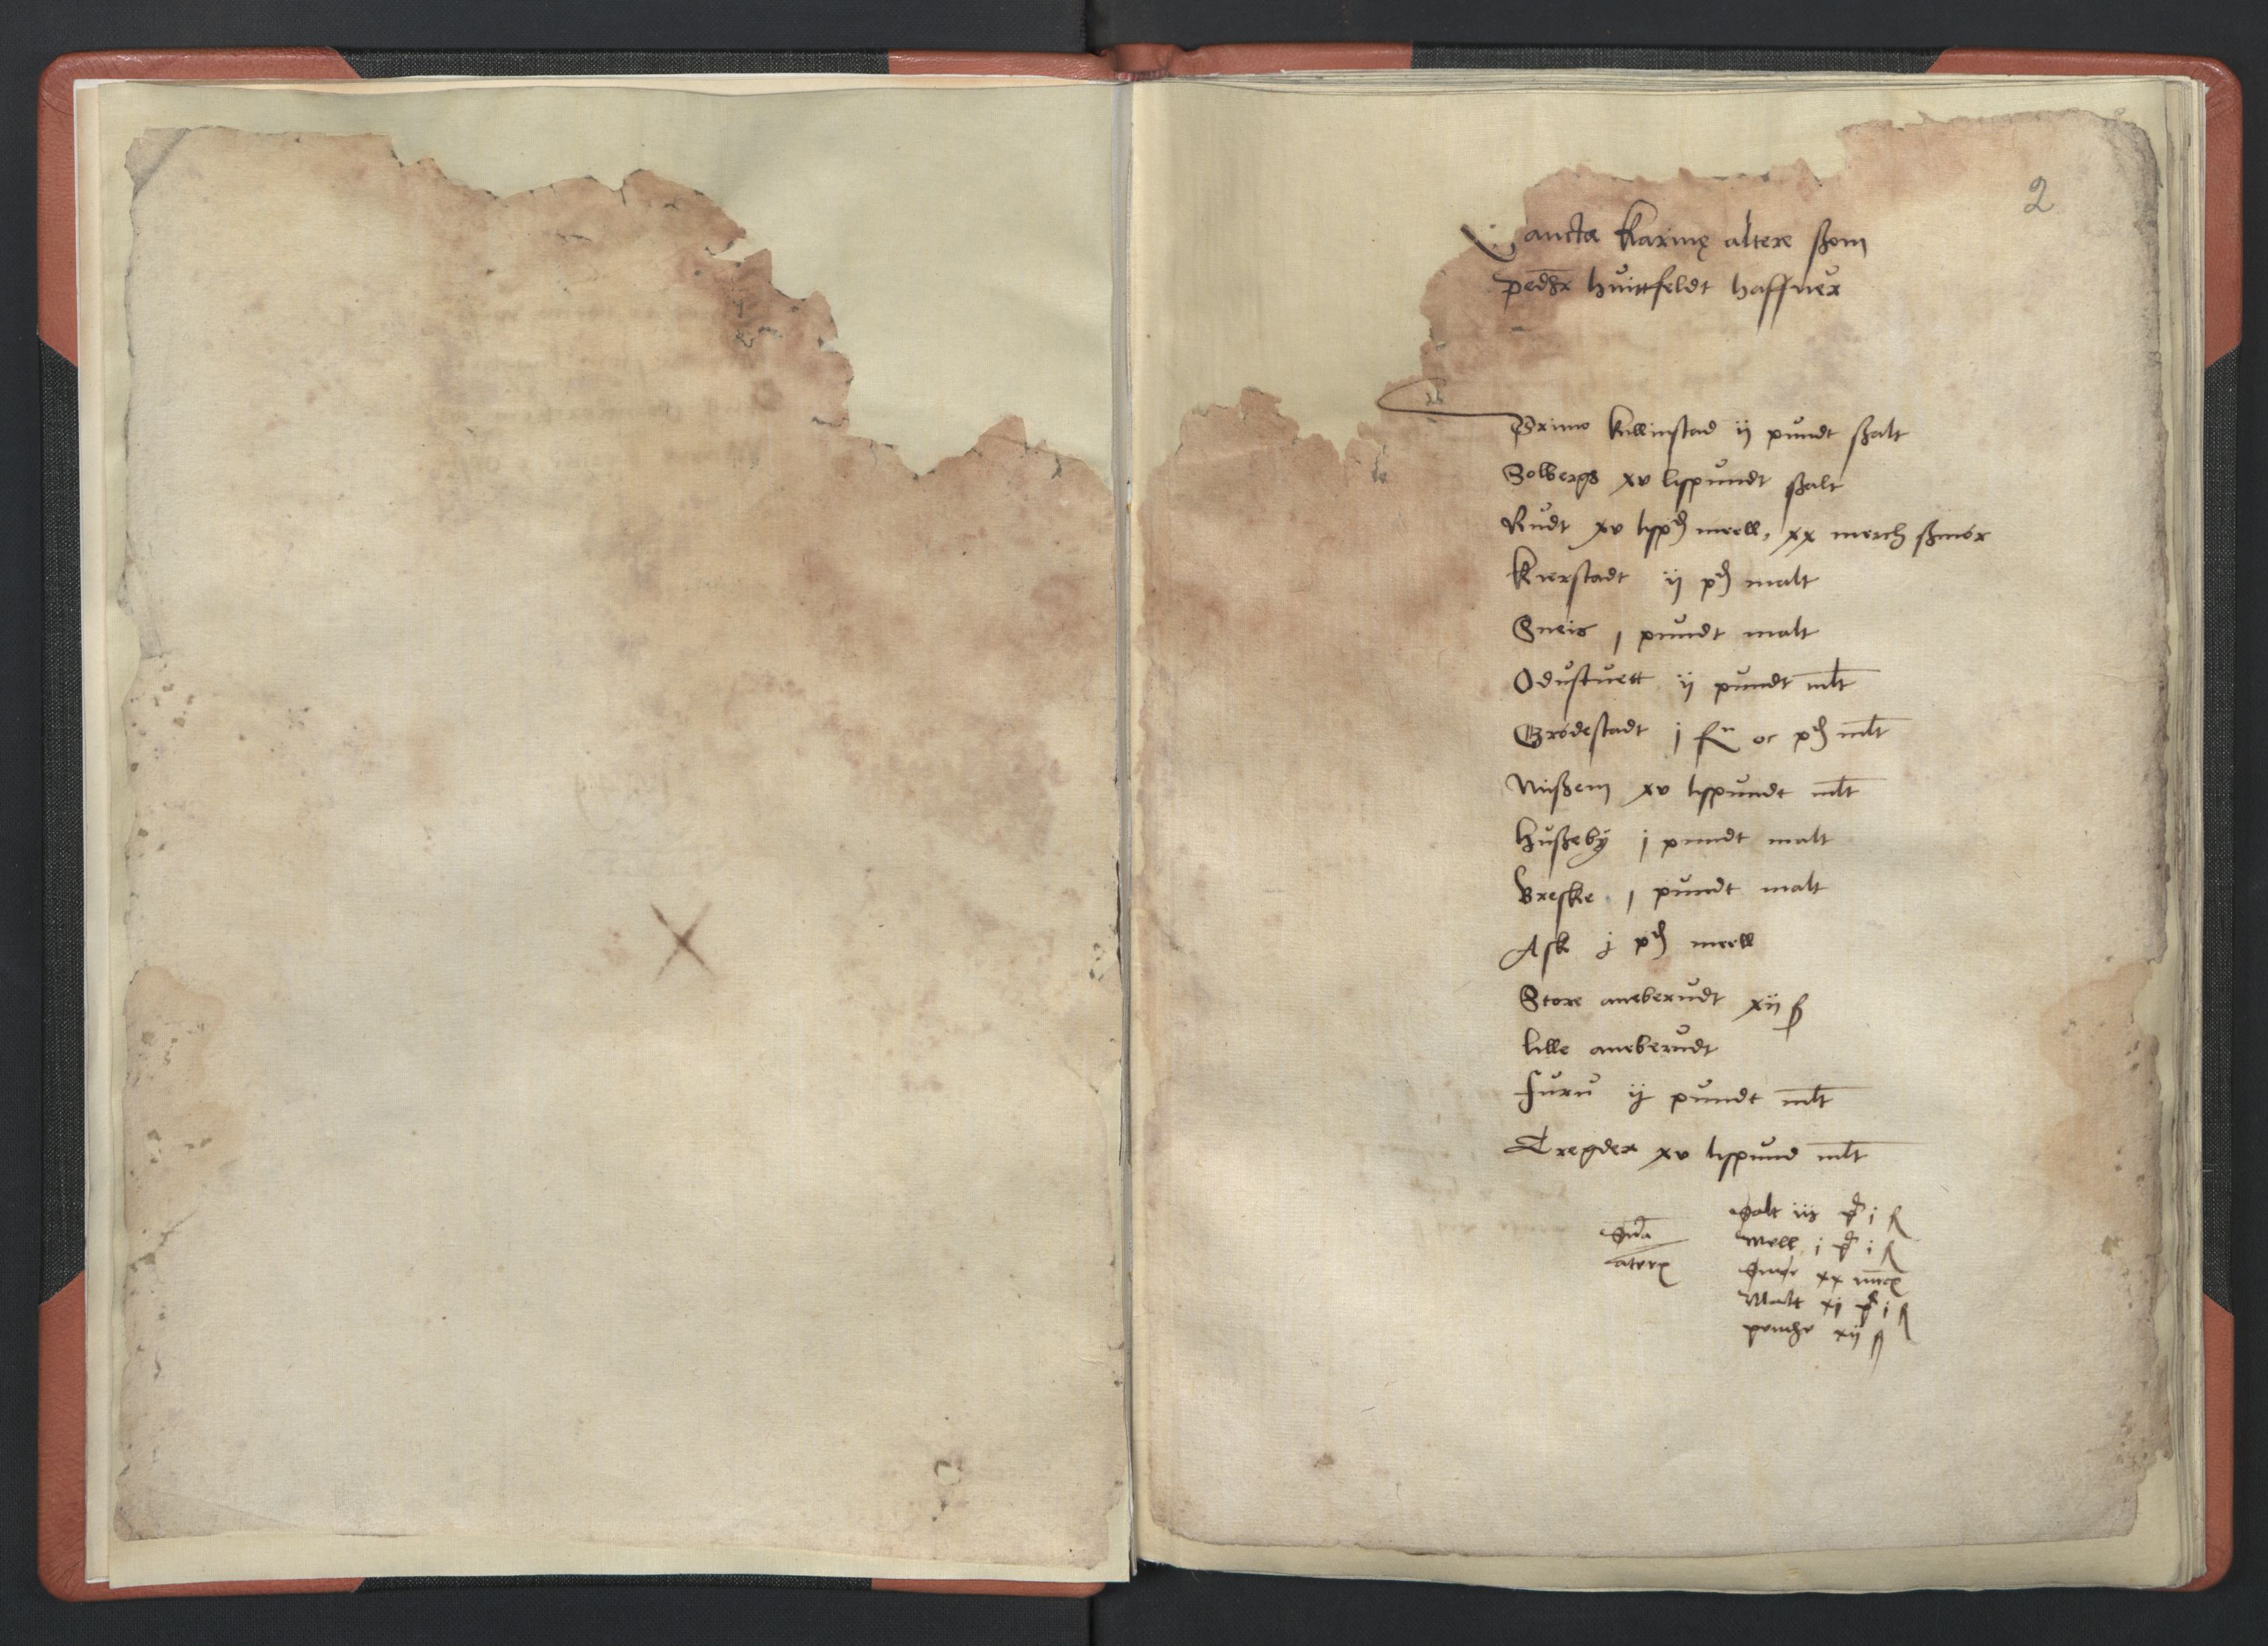 2
Sancta Karine altere ßom
pedhr huittfeldt haffuer
Primo Killinstad ij pundt ßalt
Solbergs xv lispundt ßalt
Rudt xv lispd meell, xx merch ßmör
Kierstadt ij pd malt
Sneis j pundt malt
Odustuett ij pundt mlt
Grödestadt j oc pd mlt
Nußem xv lispundt mlt
Hußeby j pundt malt
Breske j pundt malt
Ask j pd meell
Store aneberudt xij ß
lille aneberudt
Furu ij pundt mlt
Tregder xv lispund mlt
Salt iij pd j
Mell j pd j
Smör xx
Malt xj pd j
penge xij ß